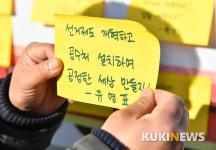 선거제도 개혁하고
공수처 설치하여
공정한 세상 만들자!
- 유 영 표
KUKINEWS